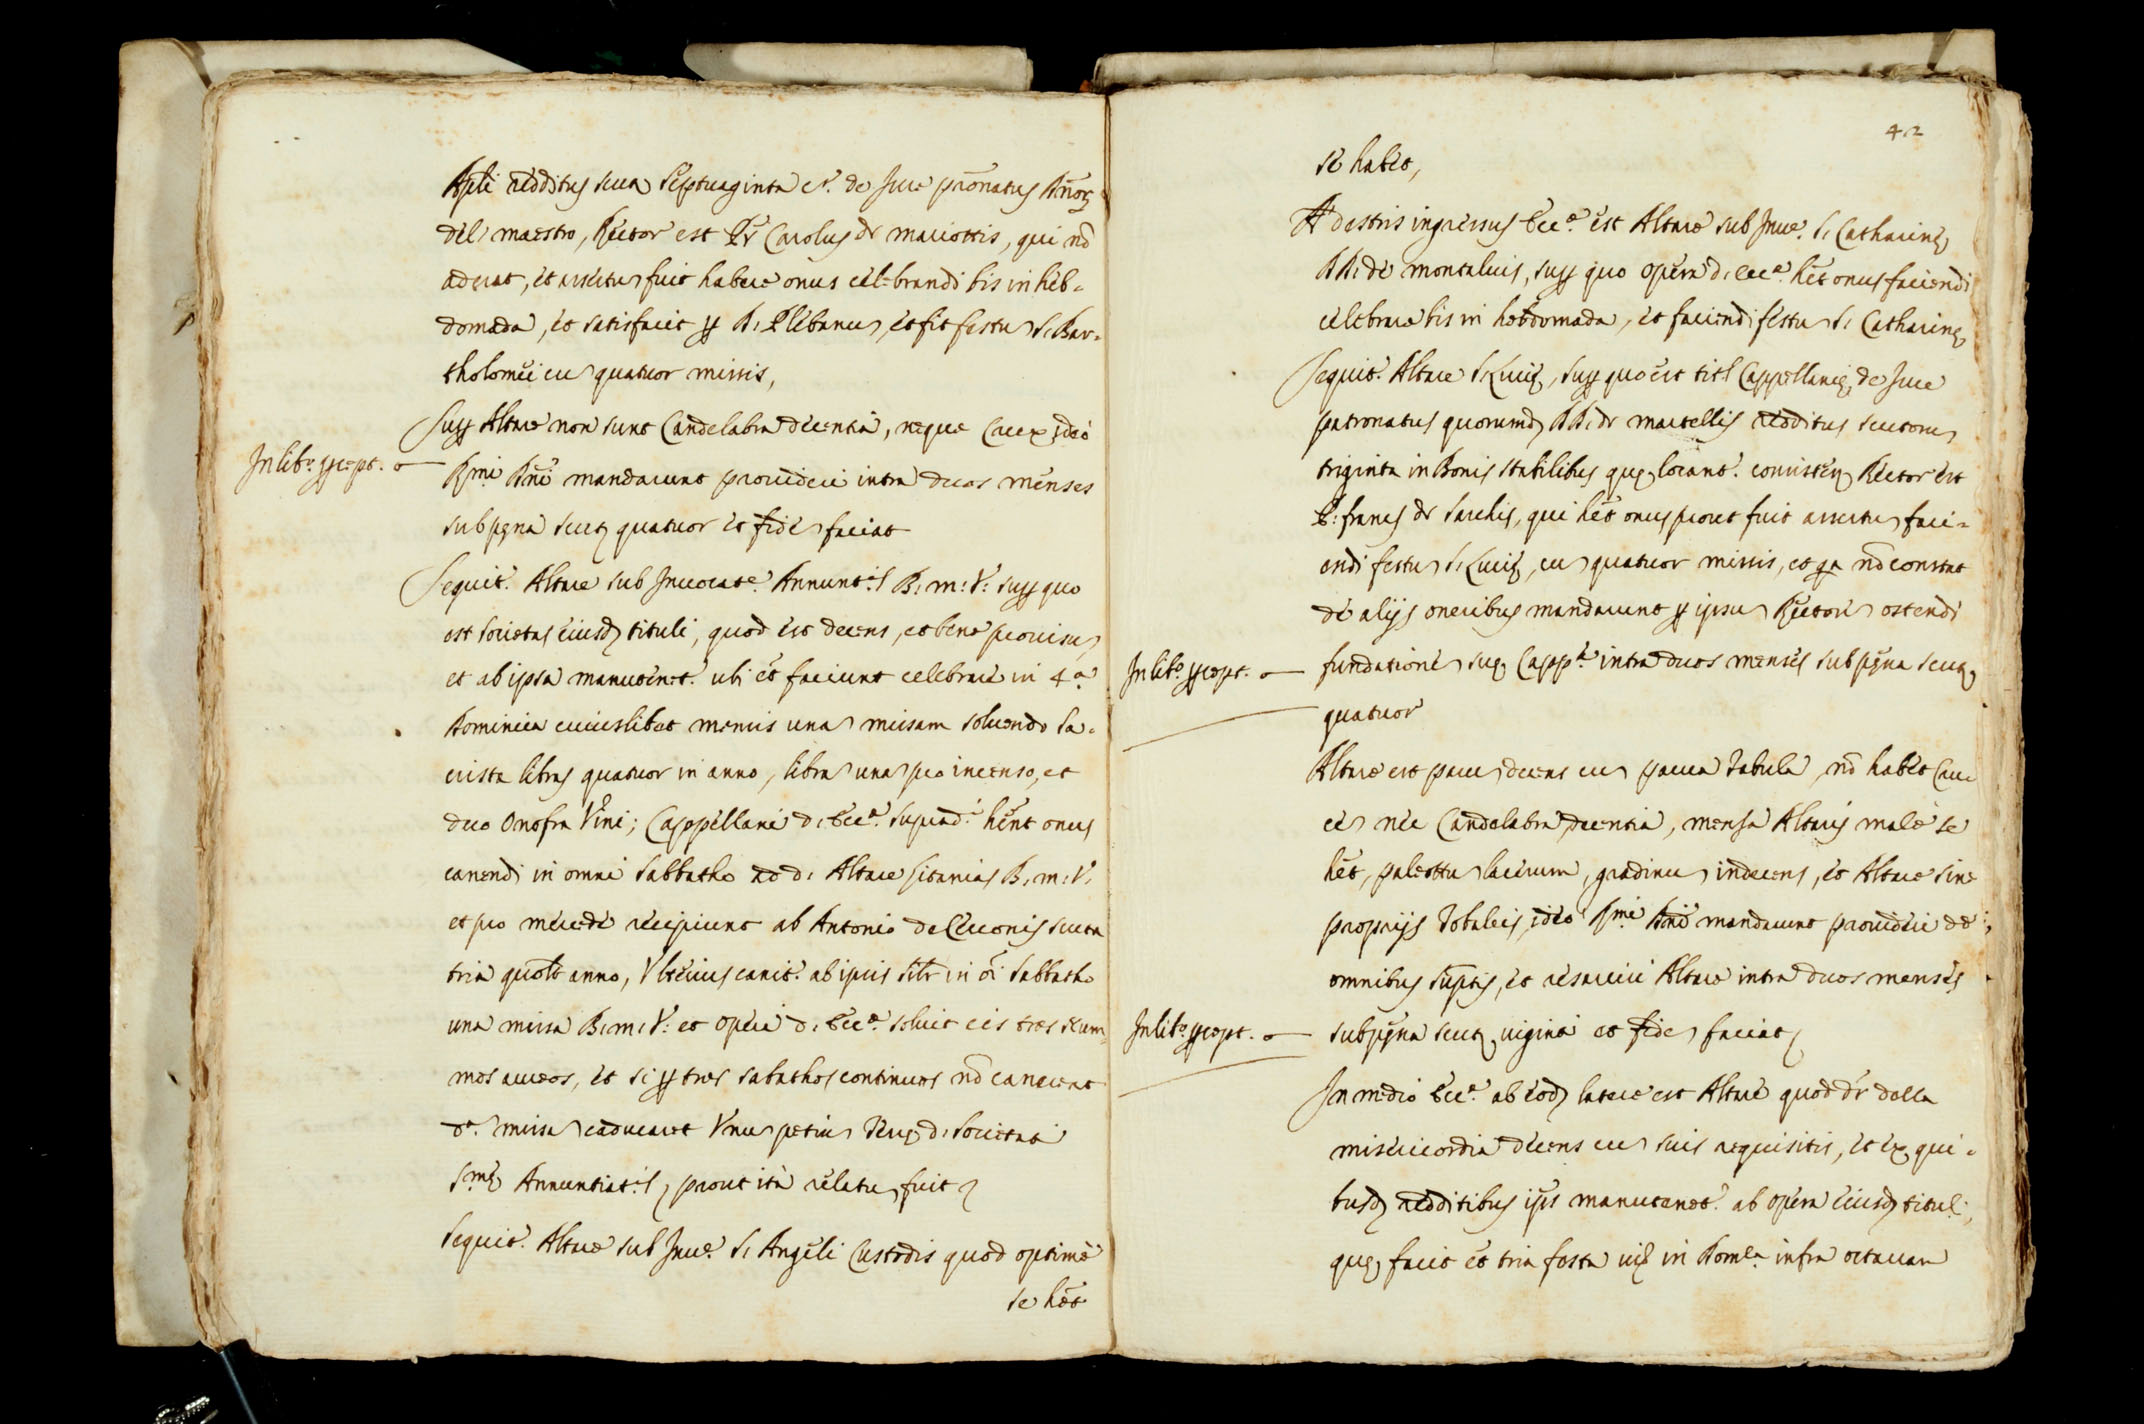 Apli redditus scut. septuaginta et. de Jure pronatus Dnor
del maestro, Rector est Pr Carolus de mariottis, qui nō
aderat, et assertu fuit habere onus celebrandi bis in heb=
domada, et satisfacit p D. Plebanu, et fit festu S. Bar=
tholomei cu quatuor missis,
Supr Altare non sunt Candelabra decentia, neque Crux ideo
In lib. precept.
Rmi Dni mandarunt provideri intra duos menses
sub pena scut quatuor et fide faciat
Sequit. Altare sub Invocate. Annunt. B. m. V. supr quo
est societas eiusd tituli, quod est decens, et bene provisu
et ab ipsa manutenet. ubi et faciunt celebrare in 4.a
Dominica cuiuslibet mensis una missam solvendo sa=
crista libras quatuor in anno, libra una pro incenso, et
duo Onofra Vini; Cappellani d. Ecc. suprad. hent onus
canendi in omni sabbatho ad d. Altare litanias B. m. V.
et pro mercede recipiunt ab Antonio de Ceuonis scuta
tria quolt anno, Ulterius canit. ab ipsis silr in oi sabbatho
una missa B. m. V. et opera d. Ecc. solvit eis tres num
mos aureos, et si pr tres sabathos continuos nō canerent
da. missa caducaret Unu petiu Terre d. Societati
sme Annuntiat. prout ita relatu fuit
Sequit. Altare sub Inve. S. Angeli Custodis quod optime
se het
42
se habet,
A dextris ingressus Ecc. est Altare sub Inve. S. Catharine
DD. de montaluis, supr quo opera d. Ecc. het onus faciendi
celebrare bis in hebdomada, et faciendi festu S. Catharine
Sequit. Altare S. Lucie, supr quo est titl Cappellanie de Jure
patronatus quorumd DD. de martellis redditus scutoru
triginta in Bonis stabilibus que locant. consisten Rector est
franc de sarchis, qui het onus prout fuit assertu faci=
endi festu S. Lucie, cu quatuor missis, et qa nō constat
de alijs oneribus mandarunt p ipsu Rectore ostendi
In lib. precept.
fundatione sue Capp. intra duos menses sub pena scut
quatuor
Altare est paru decens cu parua Tabula, nō habet Cru
ce nec Candelabra decentia, mensa Altaris male se
het, paliottu lacerum, gradinu indecens, et Altare sine
proprijs tobaleis, ideo Rmi Dni mandarunt provideri de
omnibus suptis, et resarciri Altare intra duos menses
In lib. precept.
sub pena scut viginti et fide faciat
In medio Ecc. ab eod latere est Altare quod dr della
misericordia decens cu suis requisitis, et ex qui=
busd redditibus ipss manutenet. ab opera eiusd tituli,
que facit et tria festa viz in Dom. infra octavam